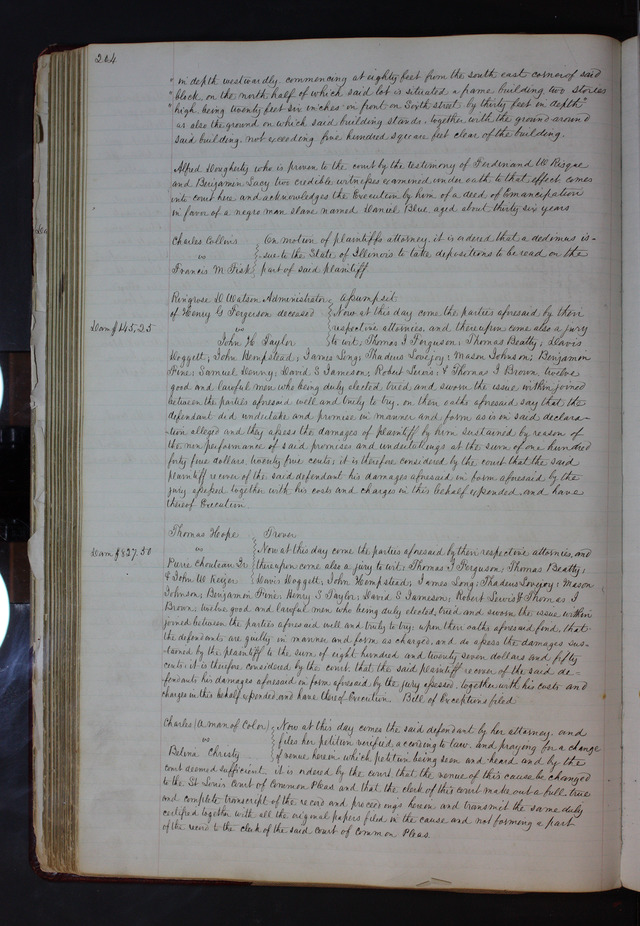 264
" in depth westwardly commencing at eighty feet from the south east corner of said
" block, on the north half of which said lot is situated a frame building two stories
" high being twenty feet six inches on front on Sixth street by thirty feet in depth"
as also the ground on which said building stands, together with the ground around
said building, not exceeding five hundred square feet clear of the building.
Alfred Dougherty who is proven to the court by the testimony of Ferdinand W Risque
and Benjamin Lacy two credible witnesses examined under oath to that effect comes
into court here and acknowledges the Execution by him of a deed of Emancipation
in favor of a negro man slave named Daniel Blue, aged about thirty six years
Charles Collins } On motion of plaintiffs attorney, it is ordered that a dedimus is-
vs } sue to the State of Illinois to take depositions to be read on the
Francis M Fisk } part of said plaintiff.
Ringrose D Watson Administrator } Assumpsit
of Henry G Ferguson deceased } Now at this day come the parties aforesaid by their
Dam $145,25
vs } respective attornies, and thereupon come also a jury
John H Taylor } to wit; Thomas I Ferguson; Thomas Beatty; Davis
Doggett; John Hempstead; James Long; Thadeus Lovejoy; Mason Johnson; Benjamin
Fine; Samuel Henry; David S Jameson; Robert Lewis; & Thomas I Brown, twelve
good and lawful men who being duly elected, tried and sworn the issue within joined
between the parties aforesaid well and truly to try, on their oaths aforesaid say that the
defendant did undertake and promise in manner and form as is in said declara-
tion alleged and they assess the damages of plaintiff by him sustained by reason of
the non performance of said promises and undertakings at the sum of one hundred
forty five dollars, twenty five cents; it is therefore considered by the court that the said
plaintiff recover of the said defendant his damages aforesaid in form aforesaid by the
jury assessed together with his costs and charges in this behalf expended, and have
thereof Execution.
Thomas Hope } Trover
vs } Now at this day come the parties aforesaid by their respective attornies, and
Dam $827.50
Pierre Chouteau Jr } thereupon come also a jury to wit; Thomas I Ferguson; Thomas Beatty;
& John W Keizer } Davis Doggett; John Hempstead; James Long; Thadeus Lovejoy; Mason
Johnson; Benjamin Fine; Henry S Taylor; David S Jameson; Robert Lewis & Thomas I
Brown, twelve good and lawful men who being duly elected, tried and sworn the issue within
joined between the parties aforesaid well and truly to try; upon their oaths aforesaid find, that
the defendants are guilty in manner and form as charged, and do assess the damages sus-
tained by the plaintiff to the sum of eight hundred and twenty seven dollars and fifty
cents; it is therefore considered by the court, that the said plaintiff recover of the said de-
fendants his damages aforesaid in form aforesaid by the jury assessed, together with his costs and
charges in this behalf expended and have thereof Execution. Bill of Exceptions filed
Charles (A man of Color) } Now at this day comes the said defendant by her attorney, and
vs } files her petition verified, according to law, and praying for a change
Belina Christy } of venue herein which petition being seen and heard and by the
court deemed sufficient it is ordered by the court that the venue of this cause be changed
to the St Louis Court of Common Pleas and that the clerk of this court make out a full true
and complete transcript of the record and proceedings herein and transmit the same duly
certified together with all the original papers filed in the cause and not forming a part
of the record to the clerk of the said Court of Common Pleas.